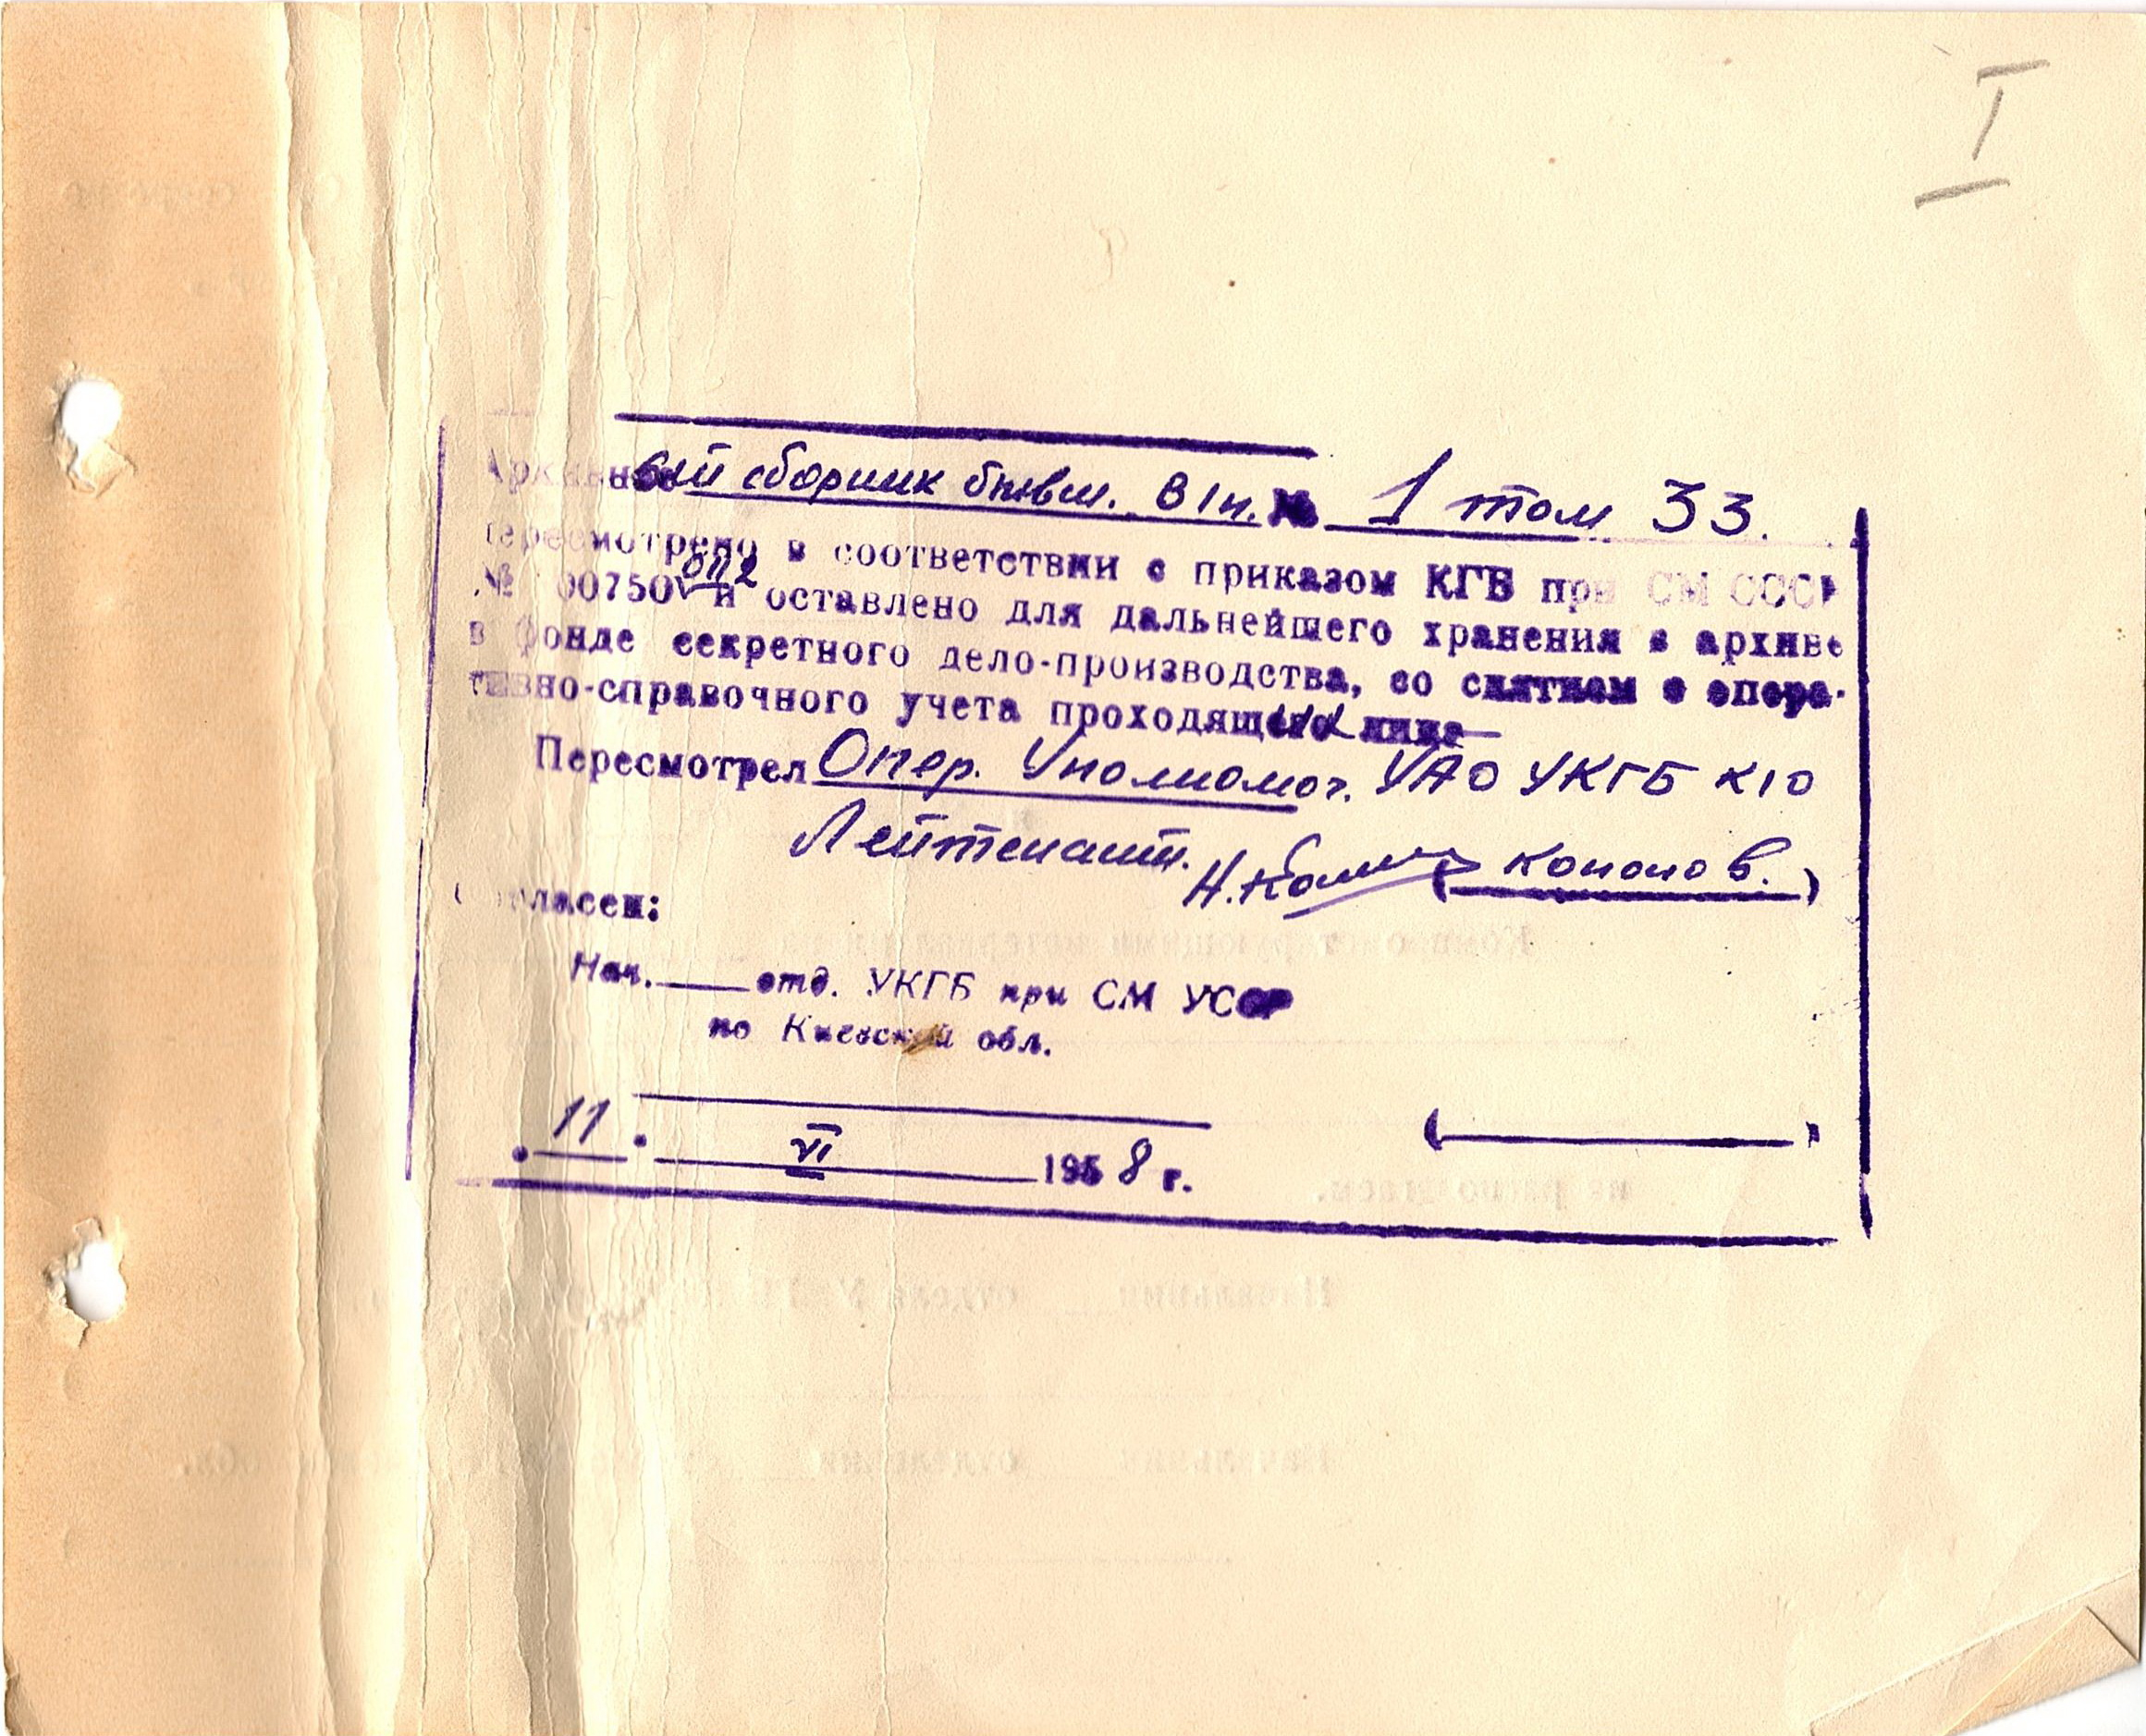 I
Архивный сборник бывш. В/н. № 1 том 33.
пересмотрено в соответствии с приказом КГБ при СМ СССР
ОП2
№ 00750 и оставлено для дальнейшего хранения в архиве
в фонде секретного дело-производства, со снятием с опера-
тивно-справочного учета проходящих
Пересмотрел Опер. Уполномоч. УАО УКГБ КО
Лейтенант. Н. (Кононов.)
Согласен:
Нач. отд. УКГБ при СМ УССР
по Киевской обл.
11 VI 1958 г.